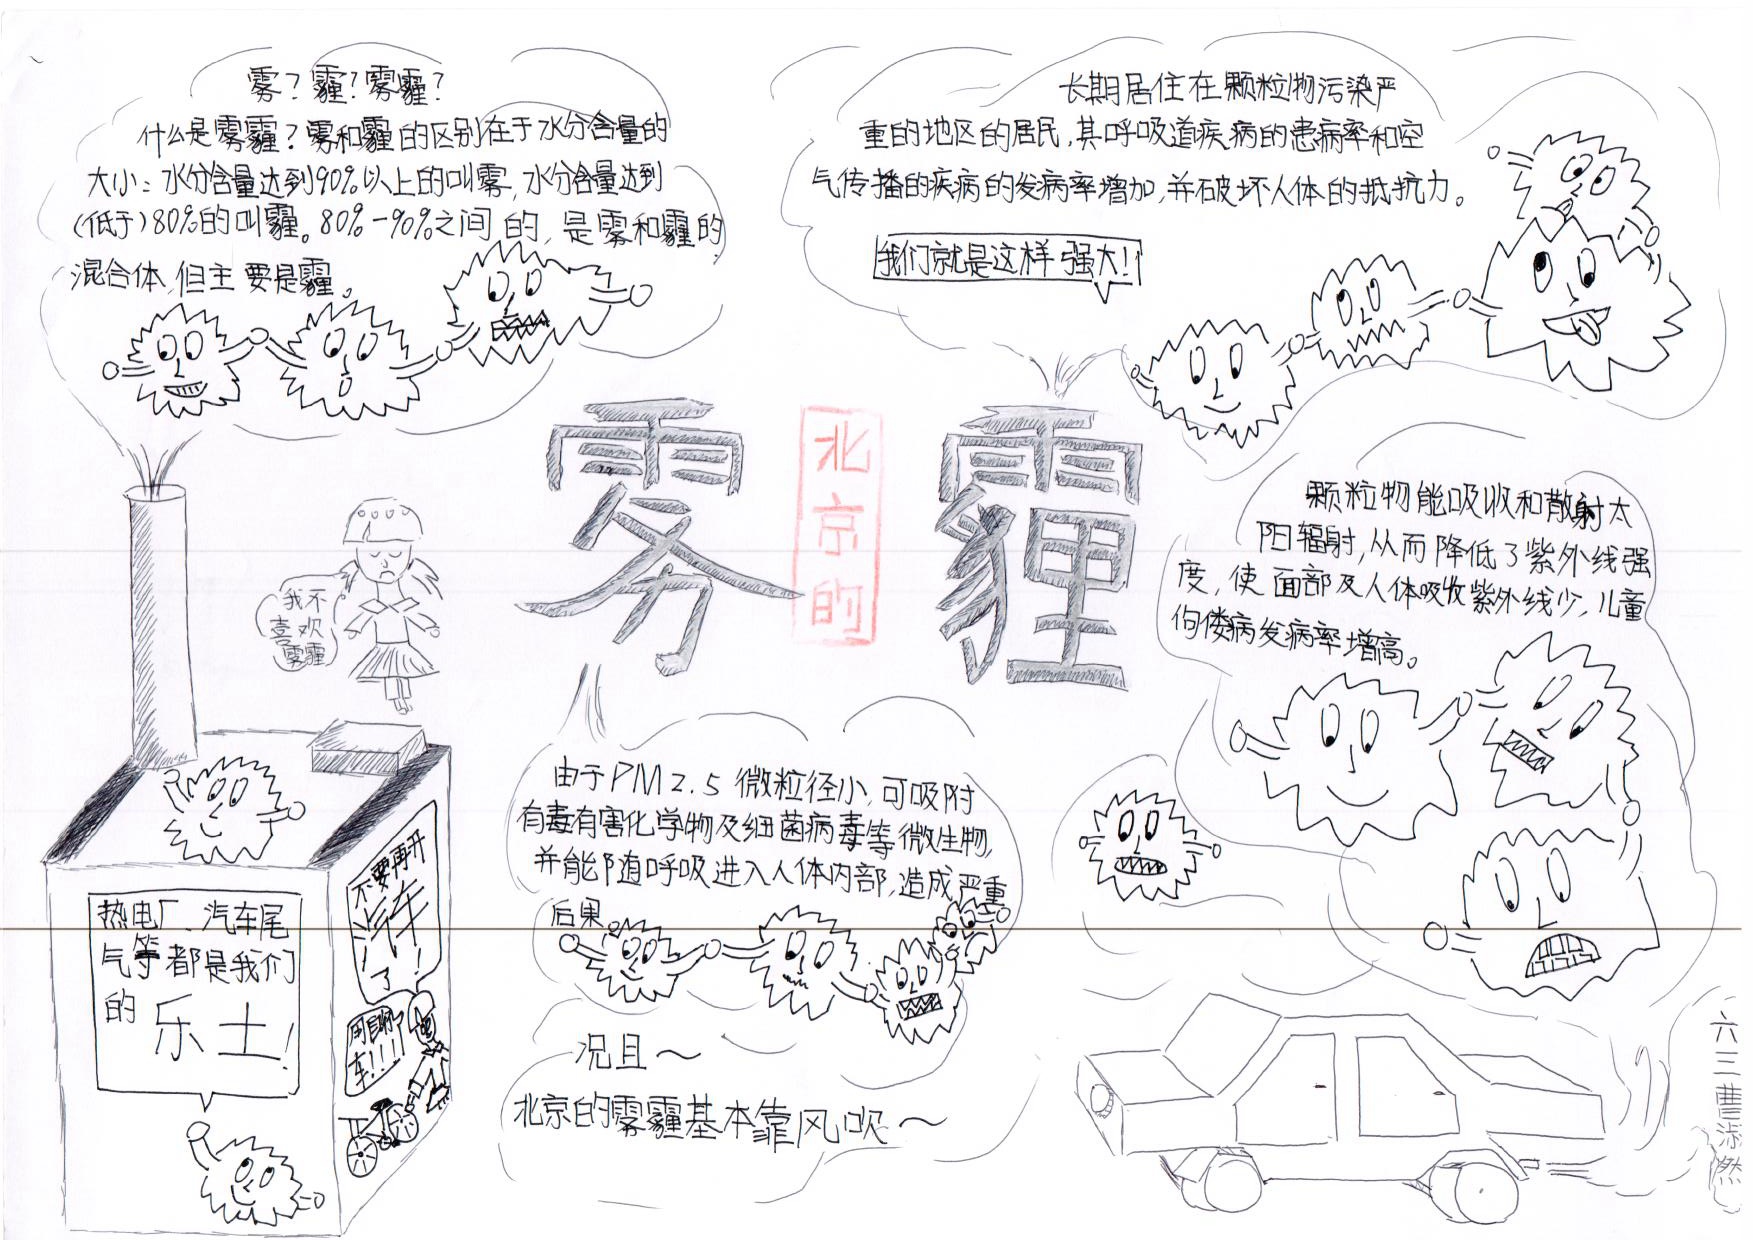 雾？霾？雾霾？
什么是雾霾？雾和霾的区别在于水分含量的
大小：水分含量达到90%以上的叫雾，水分含量达到
（低于）80%的叫霾。80%-90%之间的，是雾和霾的
混合体，但主要是霾。
长期居住在颗粒物污染严
重的地区的居民，其呼吸道疾病的患病率和空
气传播的疾病的发病率增加，并破坏人体的抵抗力。
我们就是这样强大！
雾
北京的
霾
我不
喜欢
雾霾
颗粒物能吸收和散射太
阳辐射，从而降低了紫外线强
度，使面部及人体吸收紫外线少，儿童
佝偻病发病率增高。
由于PM2.5微粒径小，可吸附
有毒有害化学物及细菌病毒等微生物，
并能随呼吸进入人体内部，造成严重
后果
况且～
北京的雾霾基本靠风吹～
热电厂、汽车尾
气等都是我们
的乐土！
不要再开
汽车
了！
车！！！
六三曹淑燃